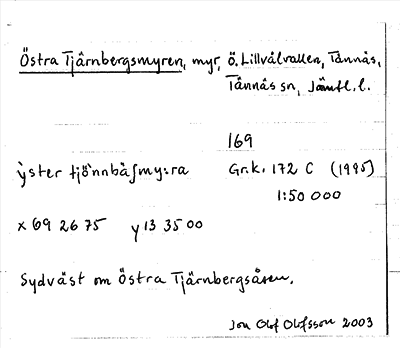 Östra Tjärnbergsmyren, myr, ö. Lillvålvallen, Tännäs,
Tännäs sn, Jämtl. l.
169
ỳster tjö̀nnbàʃmy:ra Gr.k. 172 C (1995)
1:50 000
x 69 26 75 y 13 35 00
Sydväst om Östra Tjärnbergsåsen.
Jon Olof Olofsson 2003